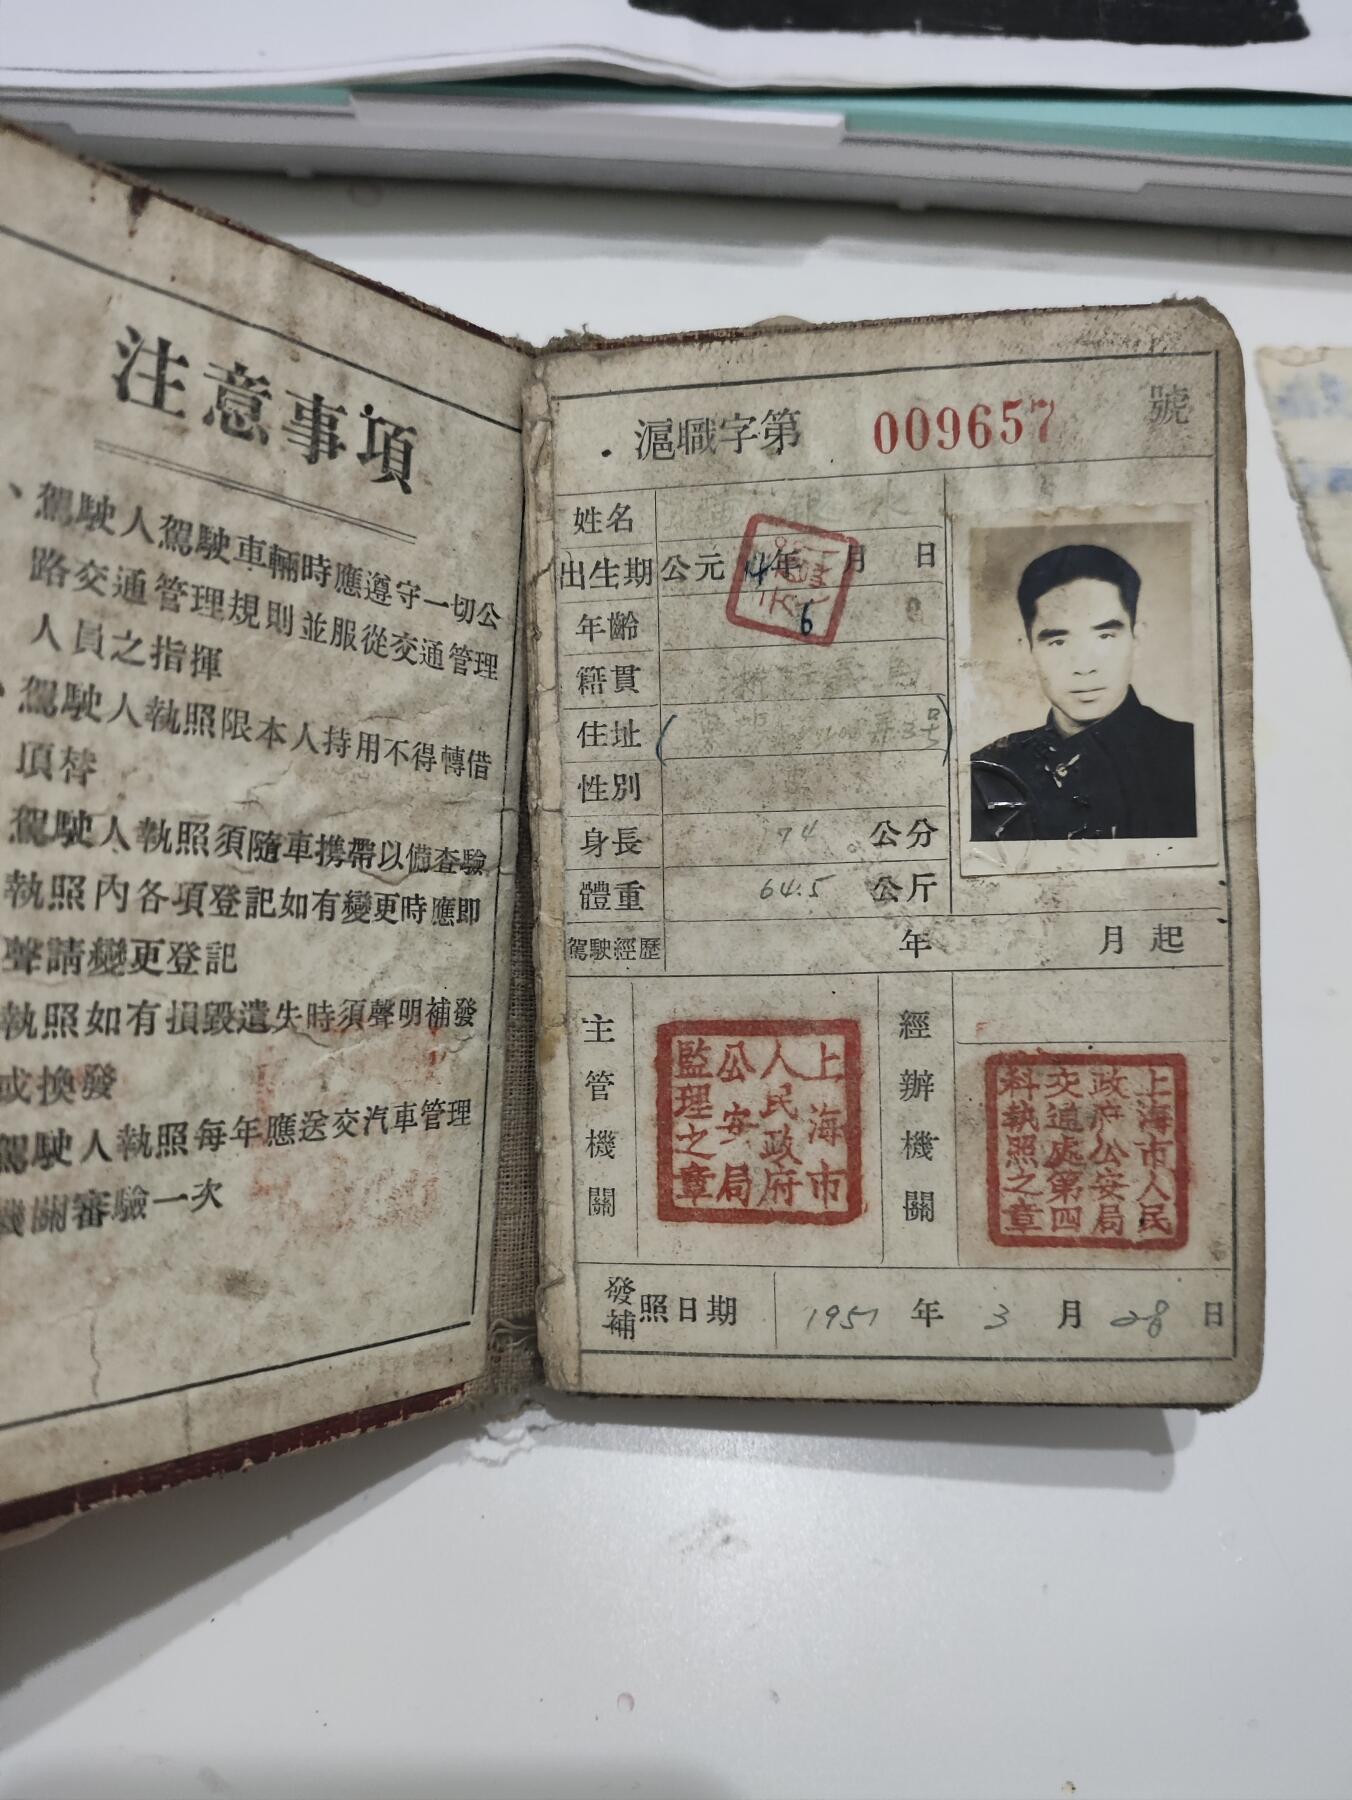 注意事項
駕駛人駕駛車輛時應遵守一切公
路交通管理規則並服從交通管理
人員之指揮
駕駛人執照限本人持用不得轉借
頂替
駕駛人執照須隨車攜帶以備查驗
執照內各項登記如有變更時應即
聲請變更登記
執照如有損毀遺失時須聲明補發
或換發
駕駛人執照每年應送交汽車管理
機關審驗一次
滬職字第 009657 號
姓名 銀水
出生期 公元 14年 6月 日
年齡
籍貫
住址
性別
身長 174 公分
體重 64.5 公斤
駕駛經歷 年 月起
主管機關
上海市
人民政府
公安局
監理之章
經辦機關
上海市人民
政府公安局
交通處第四
科執照之章
發補照日期 1951年3月28日